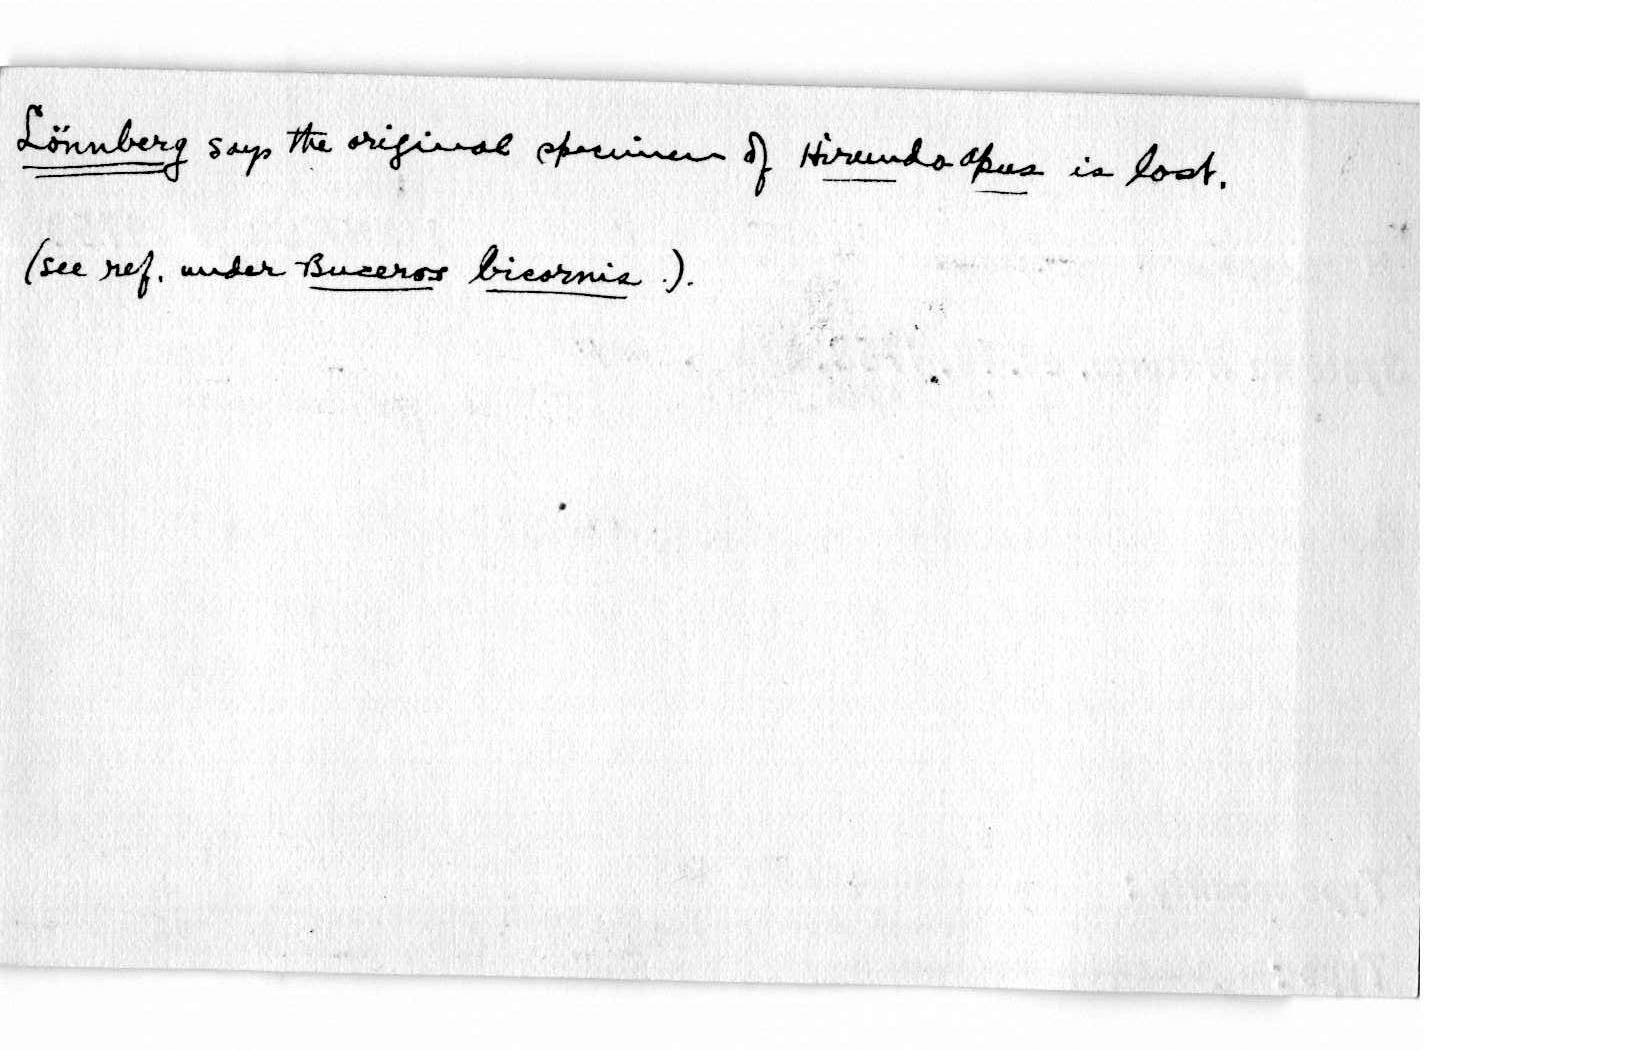 Lönnberg says the original specimen of Hirundo apus is lost.
(see ref. under Buceros bicornis.).